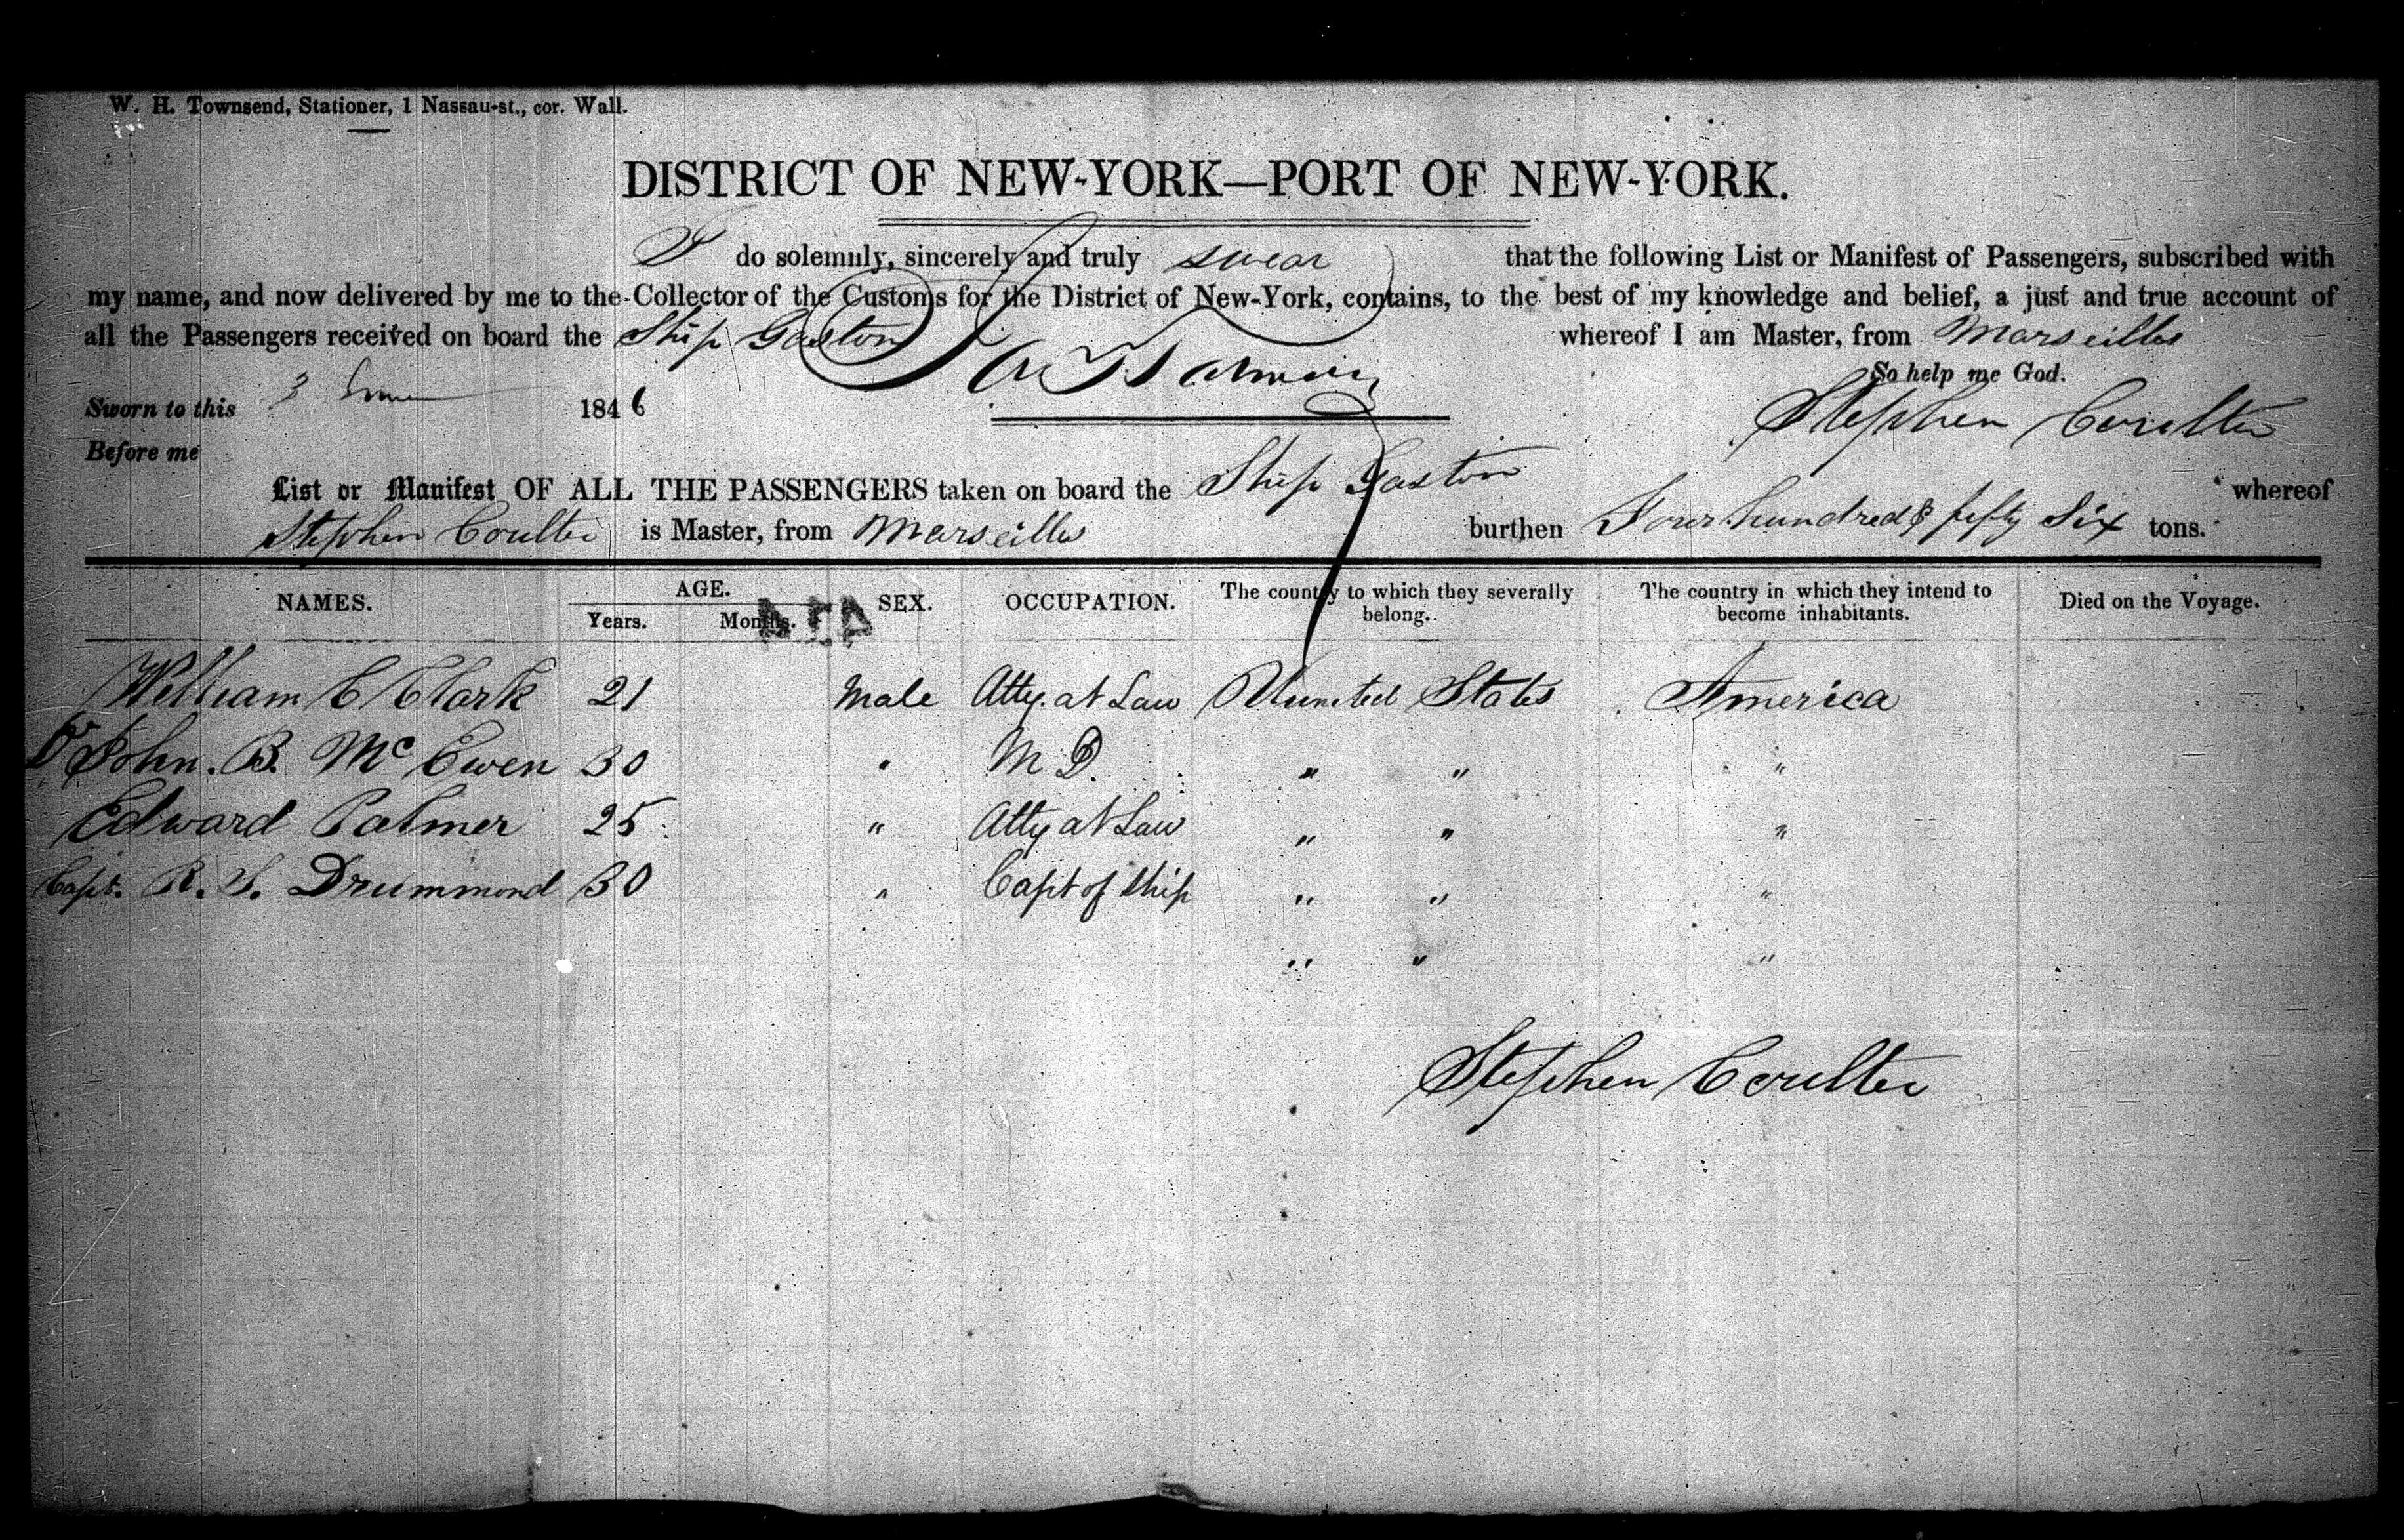 W. H. Townsend, Stationer, 1 Nassau-st., cor. Wall.
DISTRICT OF NEW-YORK—PORT OF NEW-YORK.
I do solemnly, sincerely and truly swear that the following List or Manifest of Passengers, subscribed with
my name, and now delivered by me to the Collector of the Customs for the District of New-York, contains, to the best of my knowledge and belief, a just and true account of
all the Passengers received on board the Ship Gaston whereof I am Master, from Marseilles
So help me God.
Sworn to this 3 June 1846
Stephen Coulter
Before me
List or Manifest OF ALL THE PASSENGERS taken on board the Ship Gaston whereof
Stephen Coulter is Master, from Marseilles burthen Four hundred & fifty Six tons.
NAMES. AGE. Years. Months. SEX. OCCUPATION. The country to which they severally belong. The country in which they intend to become inhabitants. Died on the Voyage.
William C Clark 21 Male Atty. at Law United States America
Dr John. B. Mc Ewen 30 " M D. " " "
Edward Palmer 25 " Atty at Law " " "
Capt. R. S. Drummond 30 " Capt of Ship " " "
" " "
Stephen Coulter